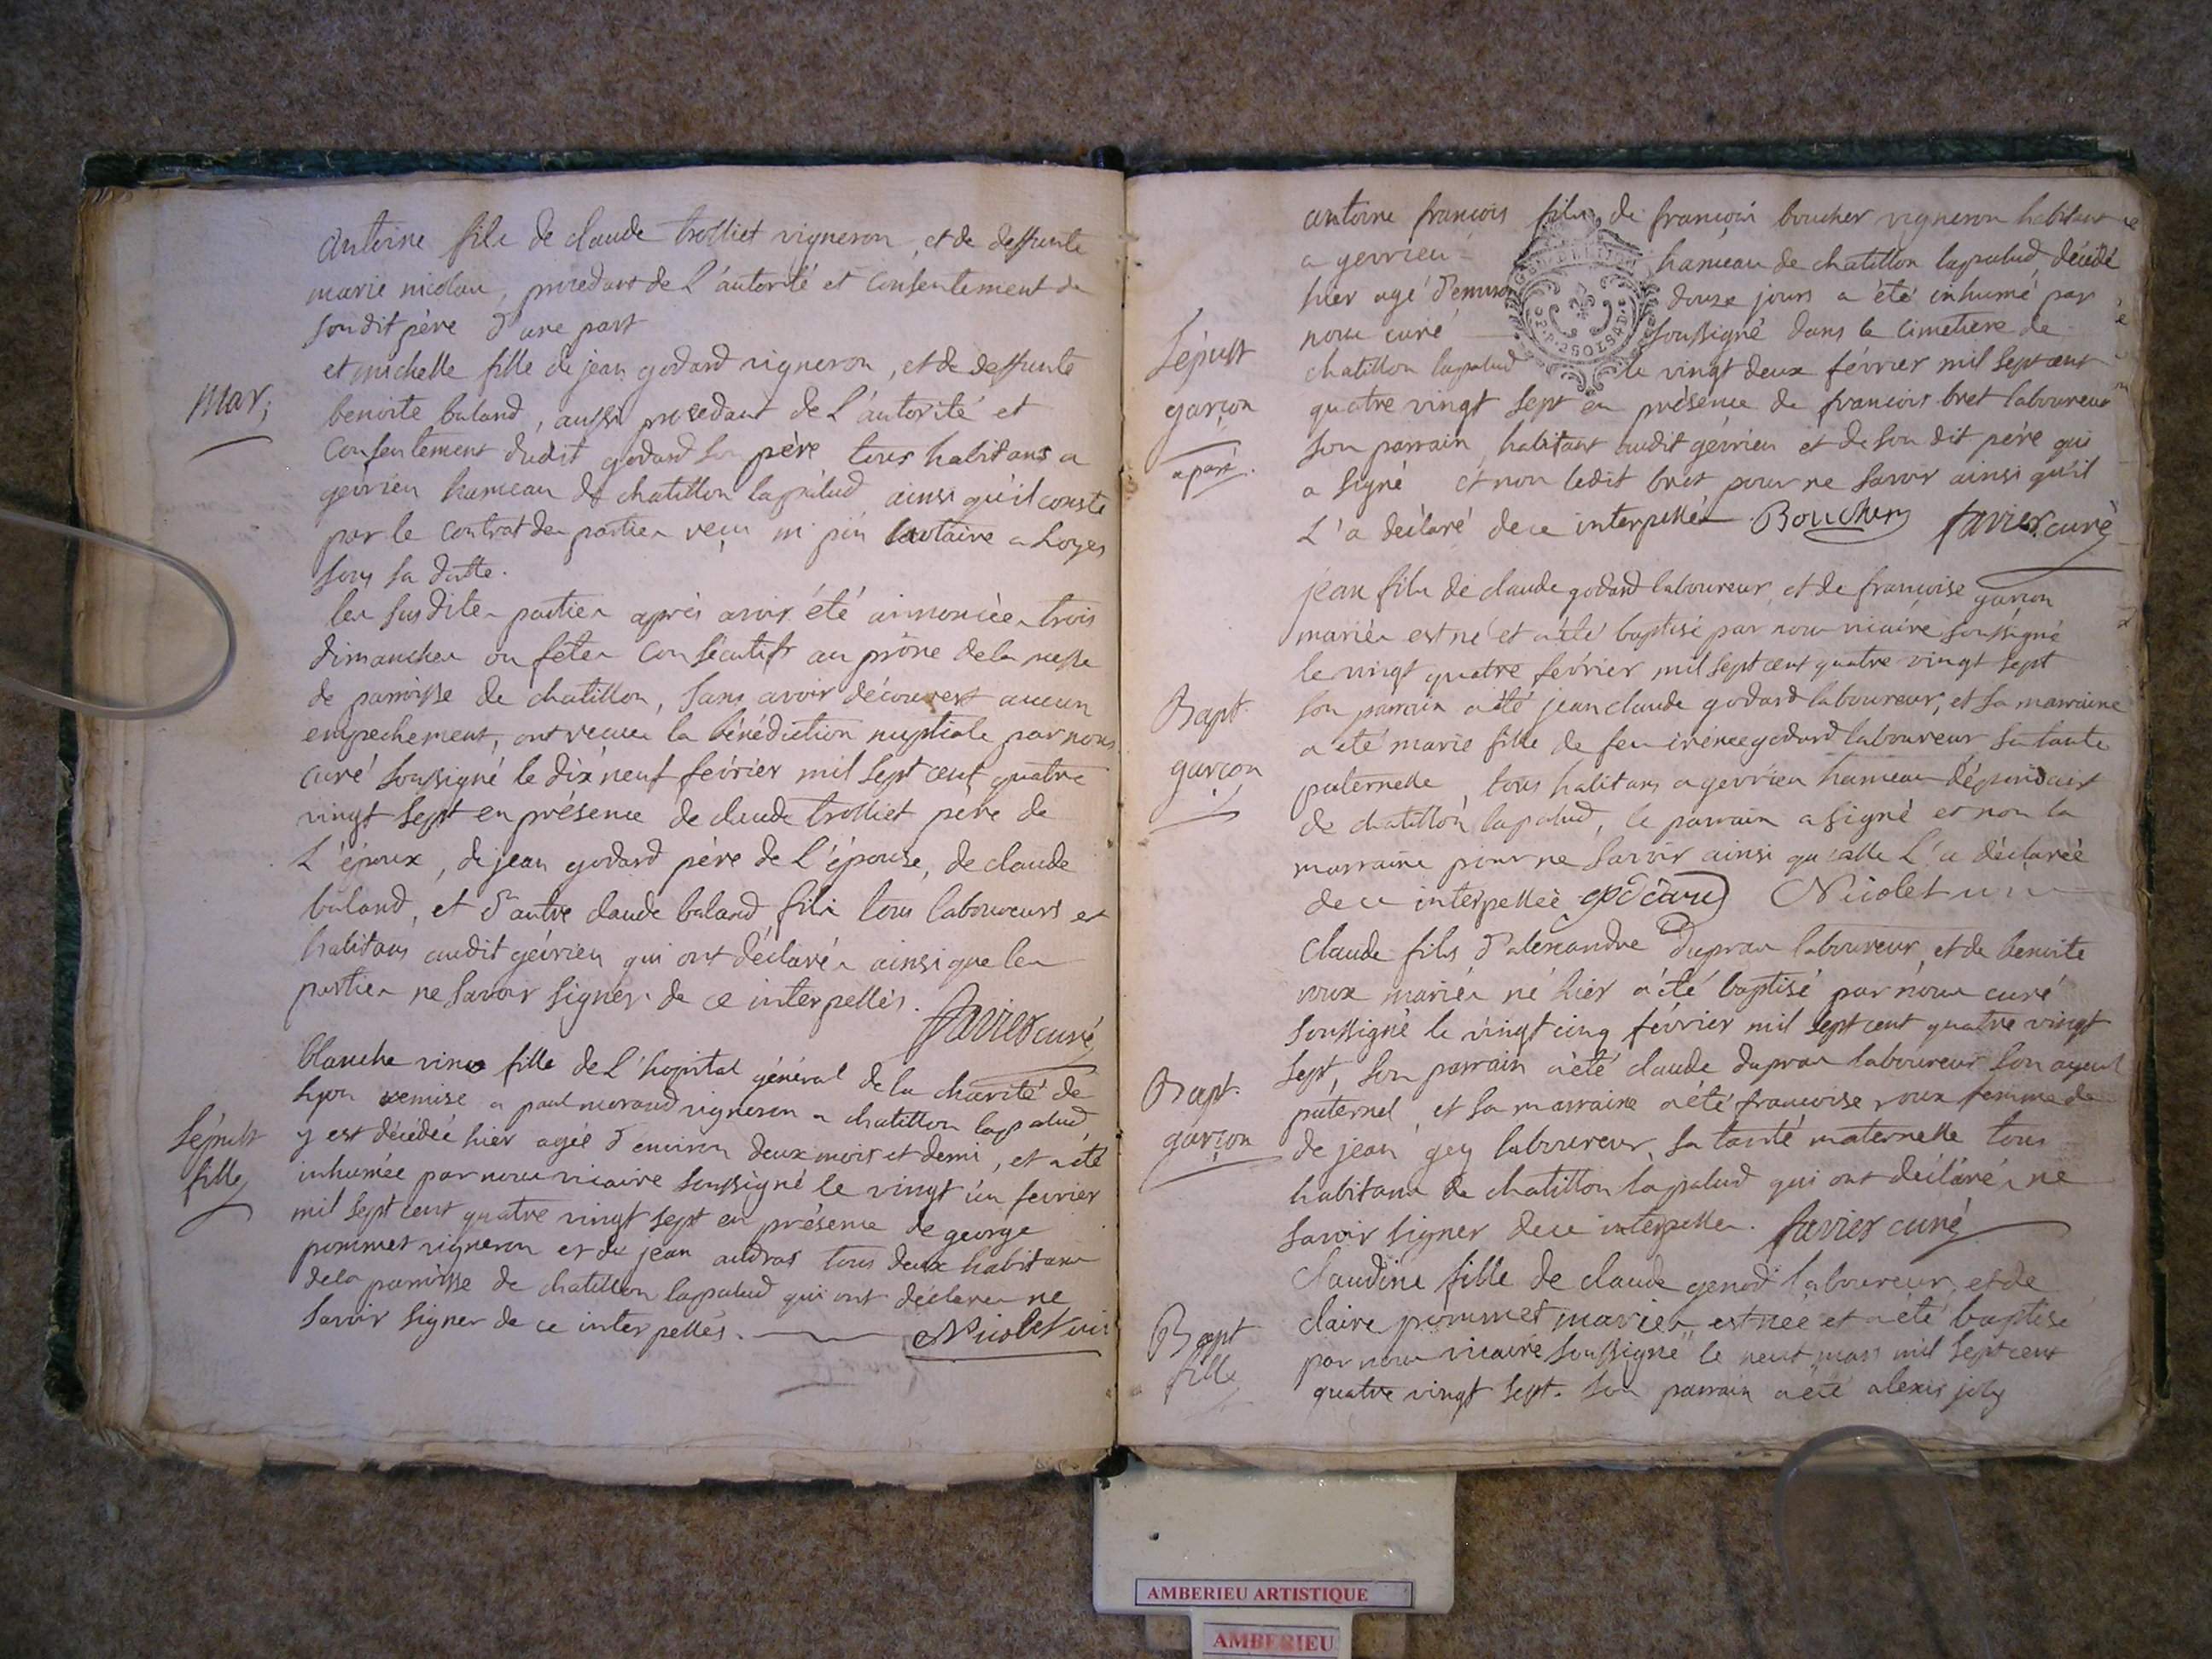 antoine fils de claude trolliet vigneron, et de deffunte
marie nicolau, procedant de l'autorité et consentement de
son dit père d'une part
et michelle fille de jean godard vigneron, et de deffunte
Mar;
benoite baland, aussi procedant de l'autorité et
consentement dudit godard son père tous habitans a
gevrieu hameau de chatillon lapalud ainsi qu'il conste
par le contrat des parties reçu notaire a loyes
sous sa datte.
les susdites parties après avoir été annoncées trois
dimanches ou fetes consécutifs au prône de la messe
de paroisse de chatillon, sans avoir découvert aucun
empechement, ont reçues la bénédiction nuptiale par nous
curé soussigné le dix neuf février mil sept cent quatre
vingt sept en présence de claude trolliet père de
L'époux, de jean godard père de L'épouse, de claude
baland, et d'autre claude baland fils tous laboureurs et
habitans audit gévrieu qui ont déclarés ainsi que les
parties ne savoir signer de ce interpellés. favier curé
blanche fille de L'hopital général de la charité de
Lyon remise a paul morand vigneron a chatillon lapalud
Sépult
fille
y est décédée hier agée d'environ deux mois et demi, et a été
inhumée par nous vicaire soussigné le vingt un fevrier
mil sept cent quatre vingt sept en présence de george
pommet vigneron et de jean audras tous deux habitans
de la paroisse de chatillon lapalud qui ont déclarés ne
savoir signer de ce interpellés. Nicolet vic
antoine françois fils de françois boucher vigneron habitant
a gevrieu hameau de chatillon lapalud, décédé
hier agé d'environ douze jours a été inhumé par
nous curé soussigné dans le cimetiere de
Sépult
garçon
chatillon lapalud le vingt deux février mil sept cent
quatre vingt sept en présence de francois bret laboureur
son parrain, habitant audit gévrieu et de son dit père qui
a signé et non ledit bret pour ne savoir ainsi qu'il
L'a déclaré de ce interpellé Boucher favier curé
jean fils de claude godard laboureur, et de francoise garçon
mariés est né et a été baptisé par nous vicaire soussigné
le vingt quatre février mil sept cent quatre vingt sept
Bapt.
garçon
son parrain a été jean claude godard laboureur, et sa marraine
a été marie fille de feu irénée godard laboureur sa tante
paternelle, tous habitans a gevrieu hameau dépendant
de chatillon lapalud, le parrain a signé et non la
marraine pour ne savoir ainsi qu'elle L'a déclarée
de ce interpellée godard Nicolet vic
Claude fils d'alexandre dupras laboureur, et de benoite
roux mariés né hier a été baptisé par nous curé
soussigné le vingt cinq février mil sept cent quatre vingt
sept, son parrain a été claude dupras laboureur son ayeul
Bapt.
garçon
paternel, et sa marraine a été francoise roux femme de
de jean gey laboureur, sa tante maternelle tous
habitans de chatillon lapalud qui ont déclarés ne
savoir signer de ce interpellés. favier curé
Claudine fille de claude genod laboureur, et de
claire pommet mariés, est née et a été baptisé
Bapt
fille
par nous vicaire soussigné le neuf mars mil sept cent
quatre vingt sept. son parrain a été alexis joly
AMBERIEU ARTISTIQUE
AMBERIEU